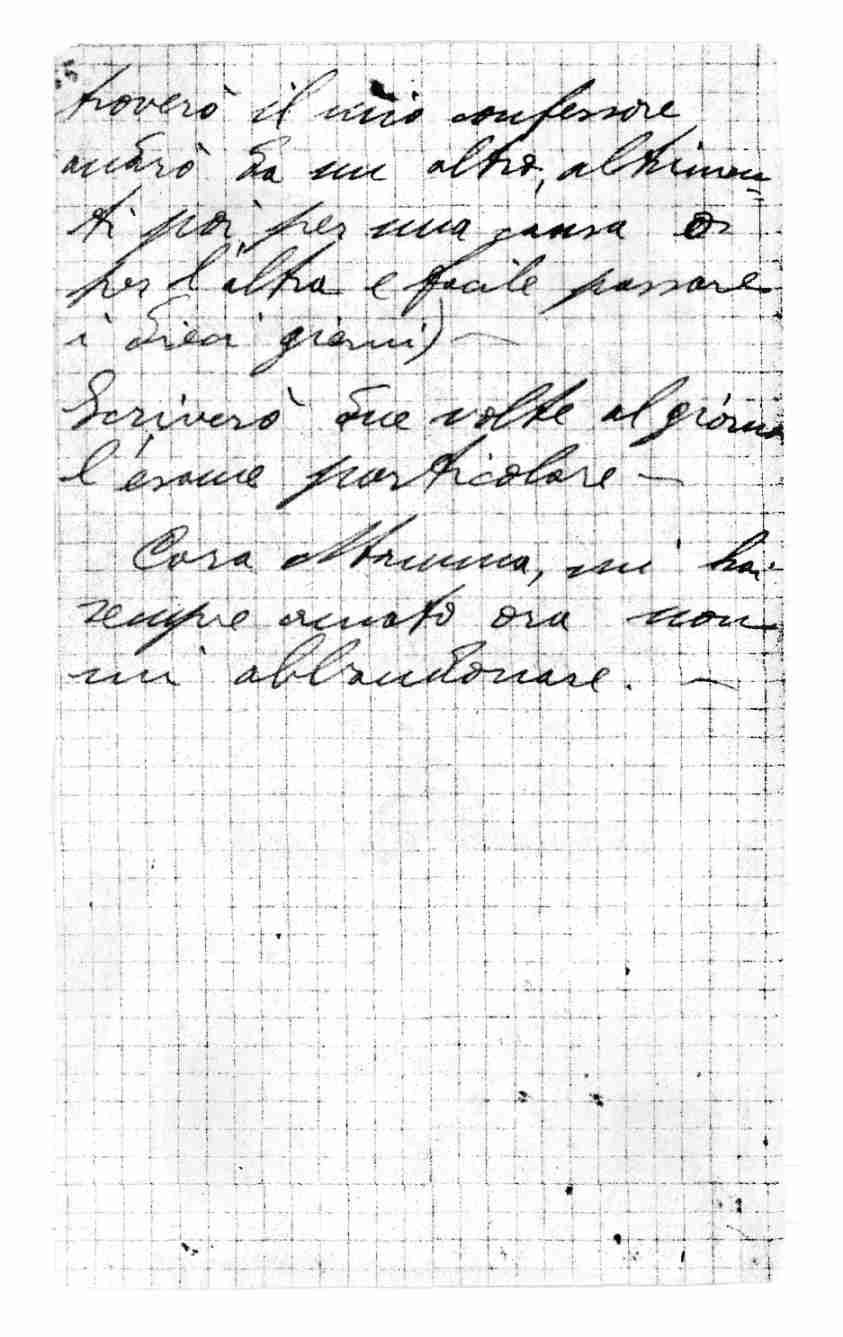 troverò il mio confessore
andrò da un altro, altrimen=
ti poi, per una causa o
per l'altra e facile passare
i dieci giorni) —
Scriverò due volte al giorno
l'esame particolare —
Cara Mamma, mi hai
sempre amato ora non
mi abbandonare. —